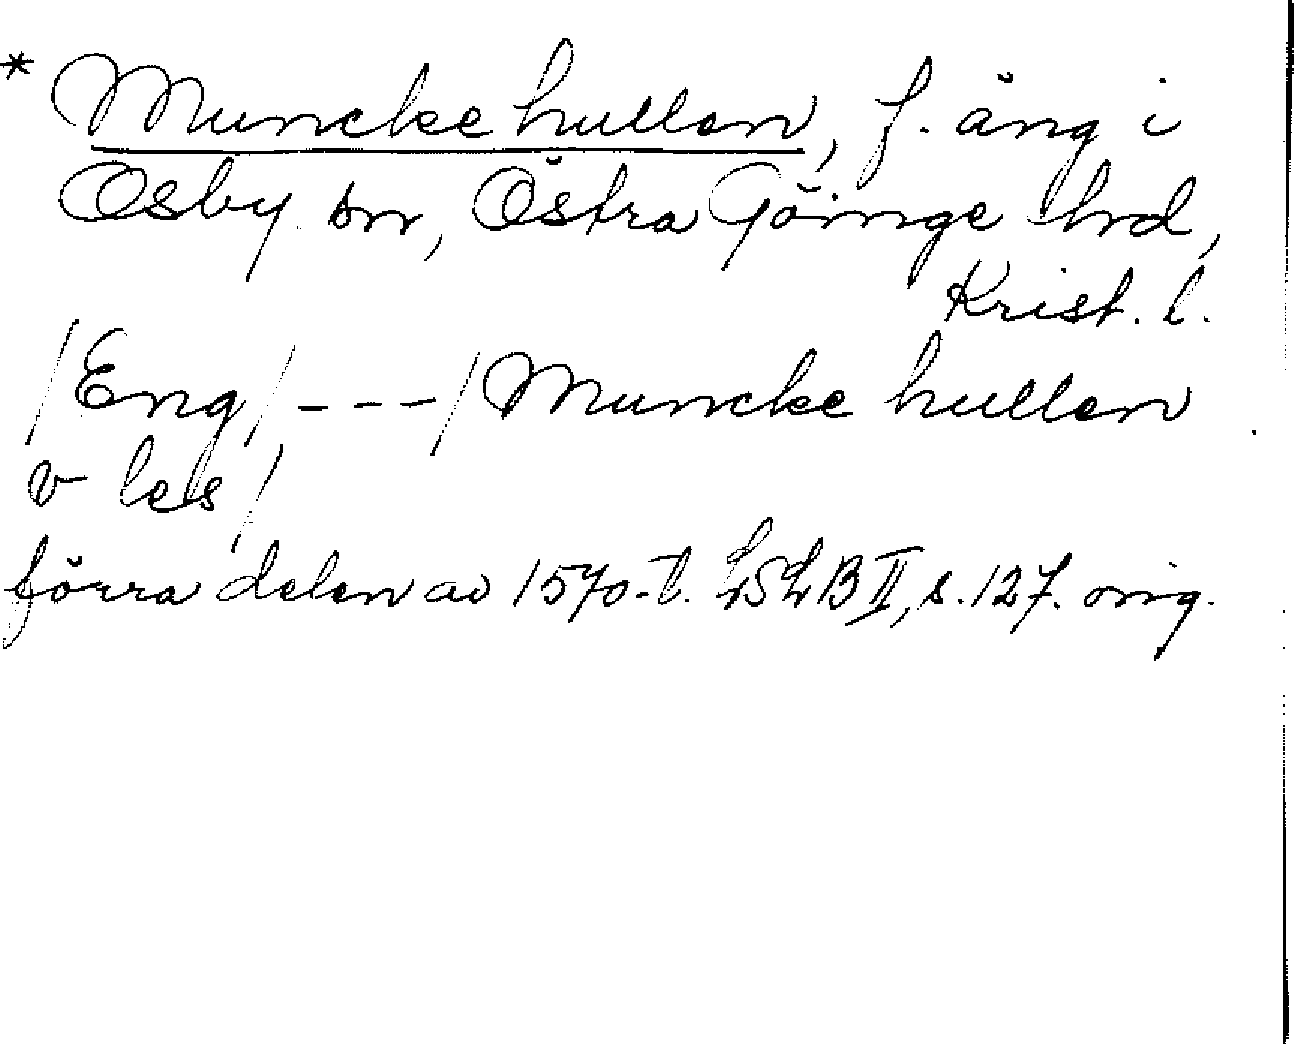 * Muncke hullen, f. äng i
Osby sn, Östra Göinge hrd,
Krist. l.
/Eng/ - - - / Muncke hullen
v les/
förra delen av 1570-t. LSLB II, s. 127. orig.